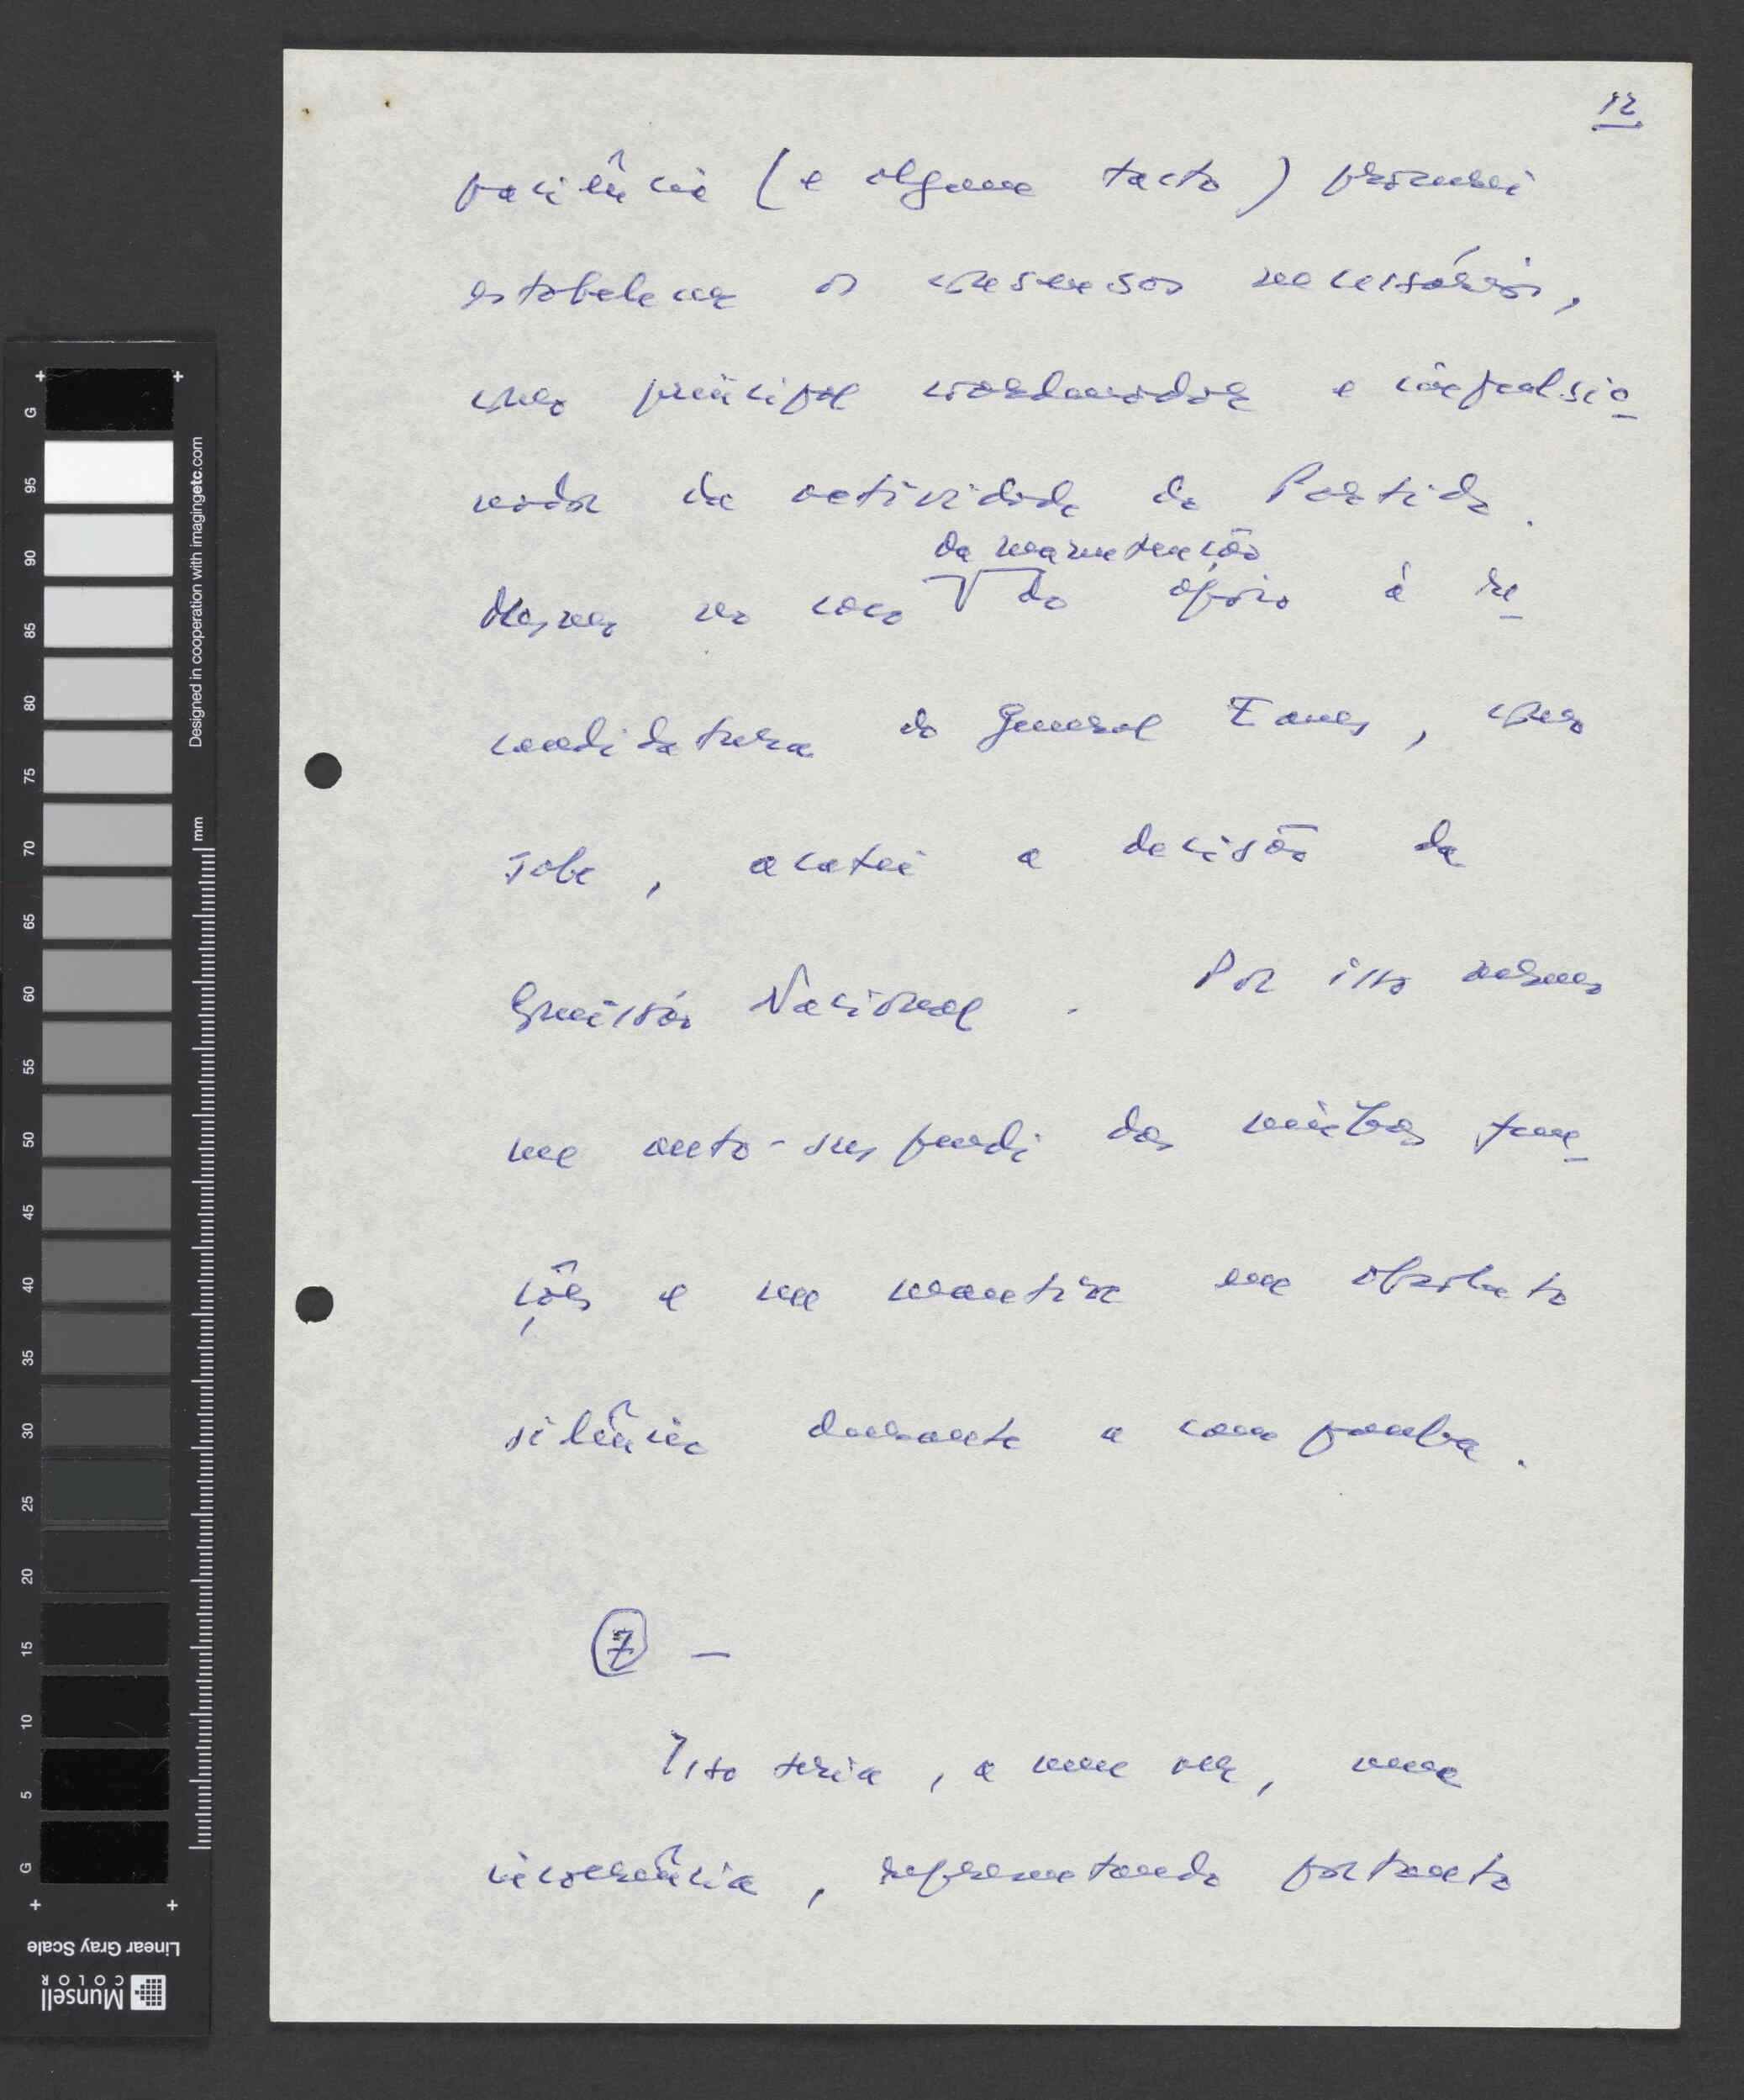 12
paciência (e algum tacto) procurei
estabelecer os consensos necessários,
como principal coordenador e impulsio-
nador da actividade do Partido.
da manutenção
Mesmo no caso do apoio à re-
candidatura do General Eanes, como
sabe, acatei a decisão da
Comissão Nacional. Por isso mesmo
me auto-suspendi das minhas fun-
ções e me mantive em absoluto
silêncio durante a campanha.
7 -
Isso seria, a meu ver, uma
incoerência, representando portanto
G
95
90
85
80
75
70
65
60
55
50
45
40
35
30
25
20
15
10
5
G
mm
Designed in cooperation with imagingetc.com
Linear Gray Scale
Munsell
COLOR